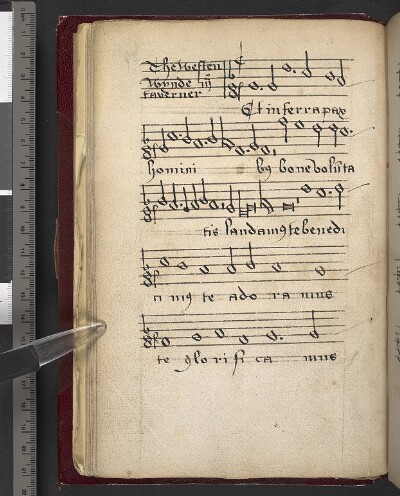 The westen
wynde iij
taverner
Et in terra pax
homini bus bone volūta
tis laudamus te benedi
a mus te ado ra mus
te glo ri fi ca mus